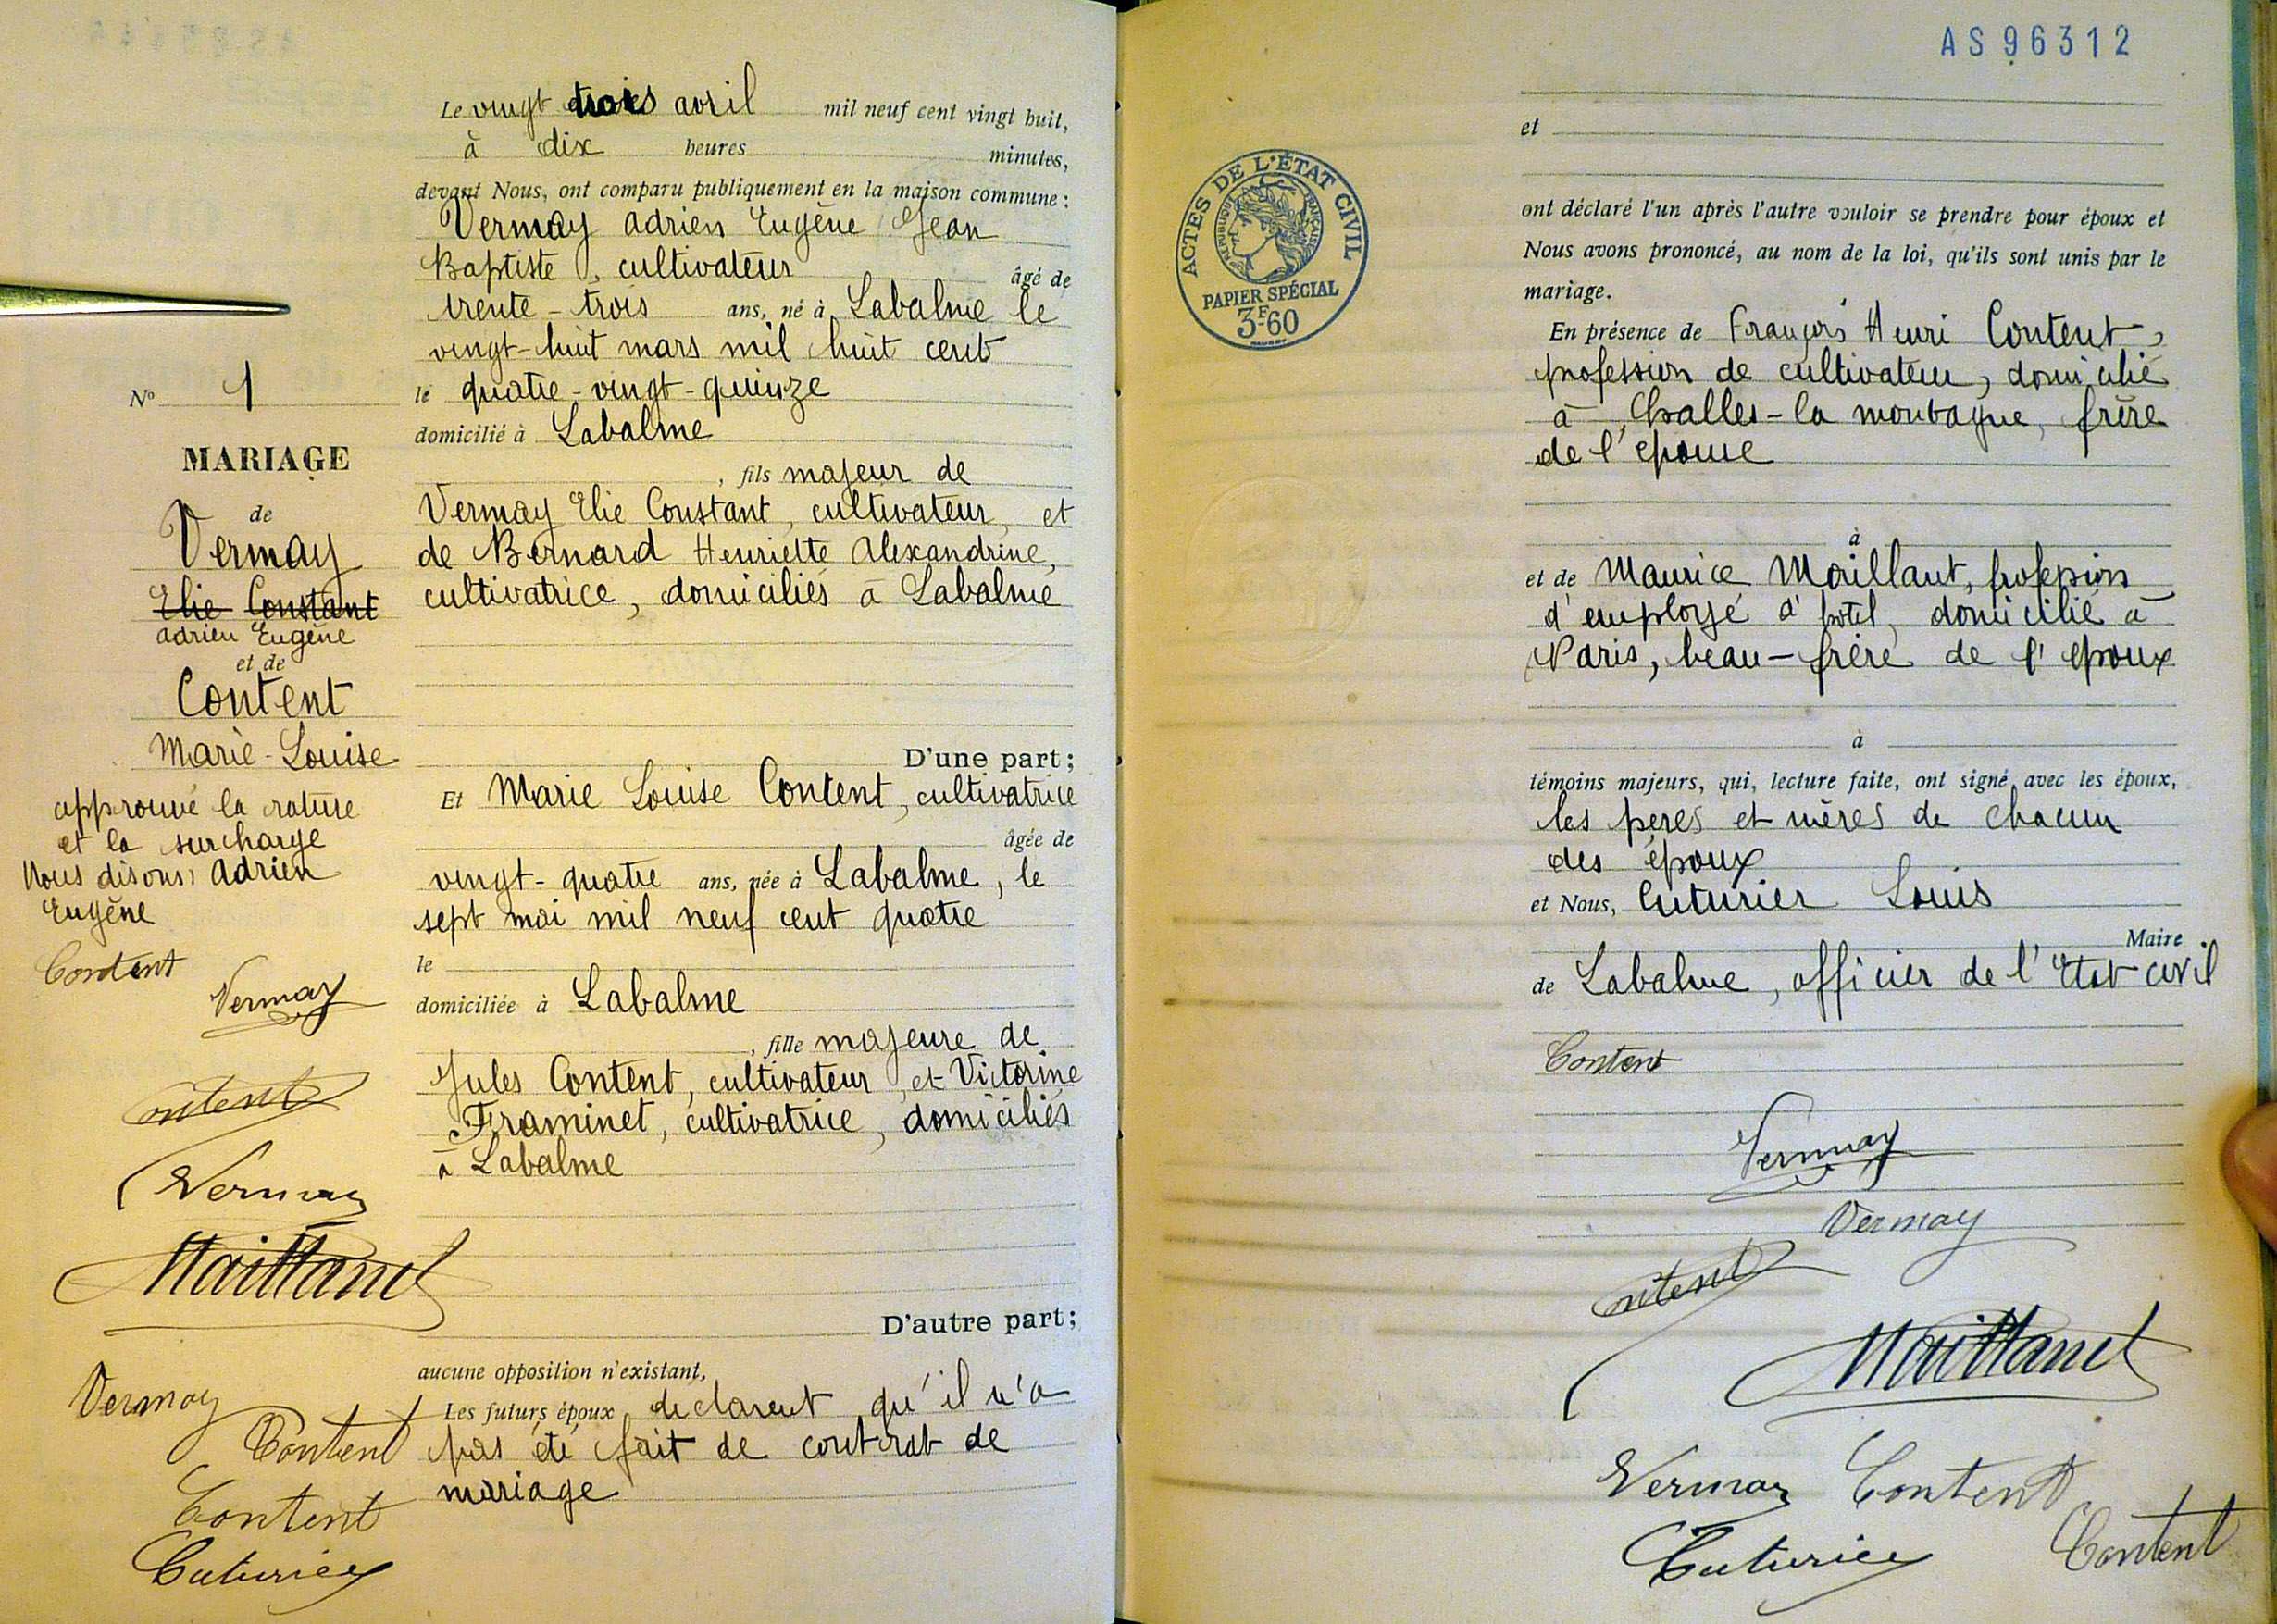 Le vingt trois avril mil neuf cent vingt huit,
à dix heures minutes,
devant Nous, ont comparu publiquement en la maison commune :
Vermay Adrien Eugène Jean
Baptiste, cultivateur âgé de
trente-trois ans, né à Labalme le
vingt-huit mars mil huit cent
le quatre-vingt-quinze
domicilié à Labalme
, fils majeur de
Vermay Elie Constant, cultivateur, et
de Bernard Henriette Alexandrine,
cultivatrice, domiciliés à Labalme
D'une part ;
Et Marie Louise Content, cultivatrice
âgée de
vingt-quatre ans, née à Labalme, le
sept mai mil neuf cent quatre
le
domiciliée à Labalme
, fille majeure de
Jules Content, cultivateur, et Victorine
Framinet, cultivatrice, domiciliés
à Labalme
D'autre part ;
aucune opposition n'existant,
Les futurs époux declarent qu'il n'a
pas été fait de contrat de
mariage
No 1
MARIAGE
de
Vermay
Elie Constant
Adrien Eugène
et de
Content
Marie-Louise
approuvé la rature
et la surcharge
Nous disons: Adrien
Eugène
Content
Vermay
Content
Vermay
Maillant
Vermay
Content
Content
Cuturier
AS 96312
et
ACTES DE L'ÉTAT CIVIL
RÉPUBLIQUE FRANÇAISE
PAPIER SPÉCIAL
3F.60
ont déclaré l'un après l'autre vouloir se prendre pour époux et
Nous avons prononcé, au nom de la loi, qu'ils sont unis par le
mariage.
En présence de François Henri Content,
profession de cultivateur, domicilié
à Challes-la montagne, frère
de l'épouse
à
et de Maurice Maillant, profession
d'employé d'hôtel, domicilié à
Paris, beau-frère de l'époux
à
témoins majeurs, qui, lecture faite, ont signé avec les époux,
les pères et mères de chacun
des époux
et Nous, Cuturier Louis
Maire
de Labalme, officier de l'Etat civil
Content
Vermay
Vermay
Content
Maillant
Vermay Content
Cuturier Content